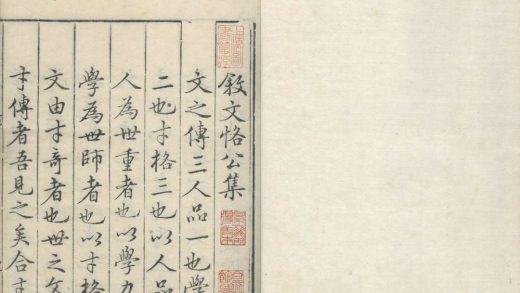 敘文恪公集
文之傳三人品一也學
二也才格三也以人品
人為世重者也以學力
學為世師者也以才格
文由才奇者也世之文
才傳者吾見之矣合才